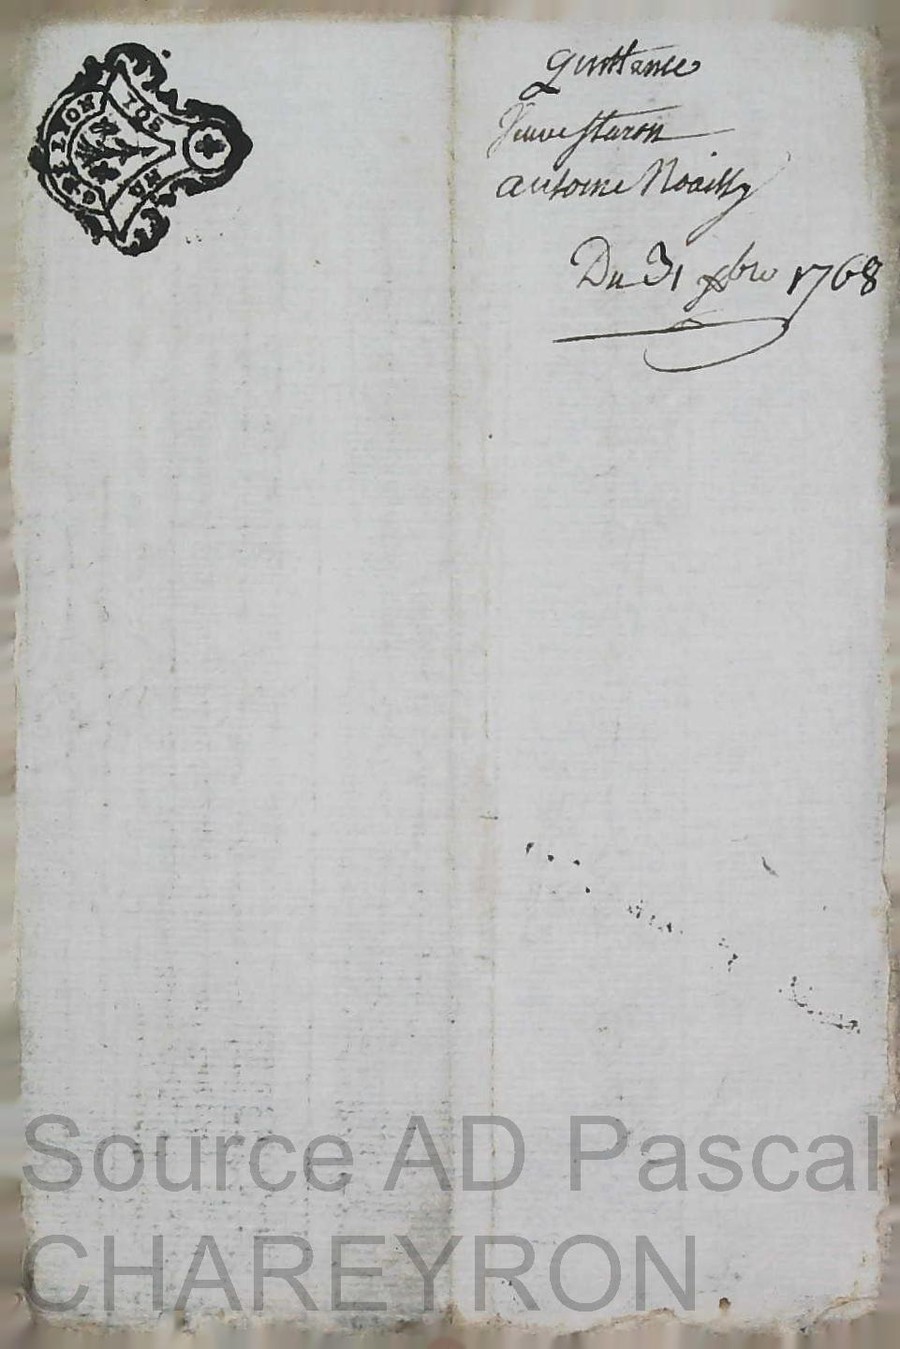 quittance
Veuve Staron
antoine Noailly
Du 31 xbre 1768
Source AD Pascal
CHAREYRON